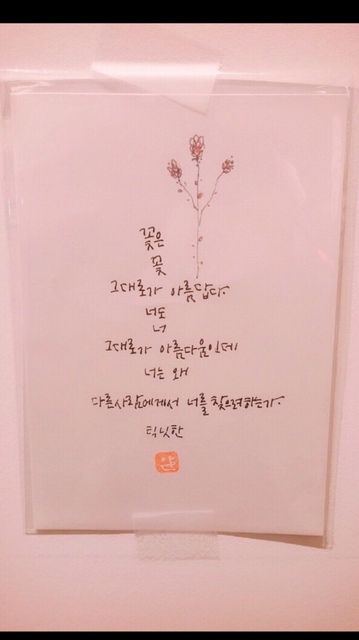 꽃은
꽃
그대로가 아름답다.
너도
너
그대로가 아름다움인데
너는 왜
다른사람에게서 너를 찾으려하는가.
틱낫한